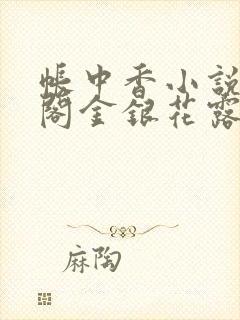 帳中香小說
閣金銀花露
麻陶